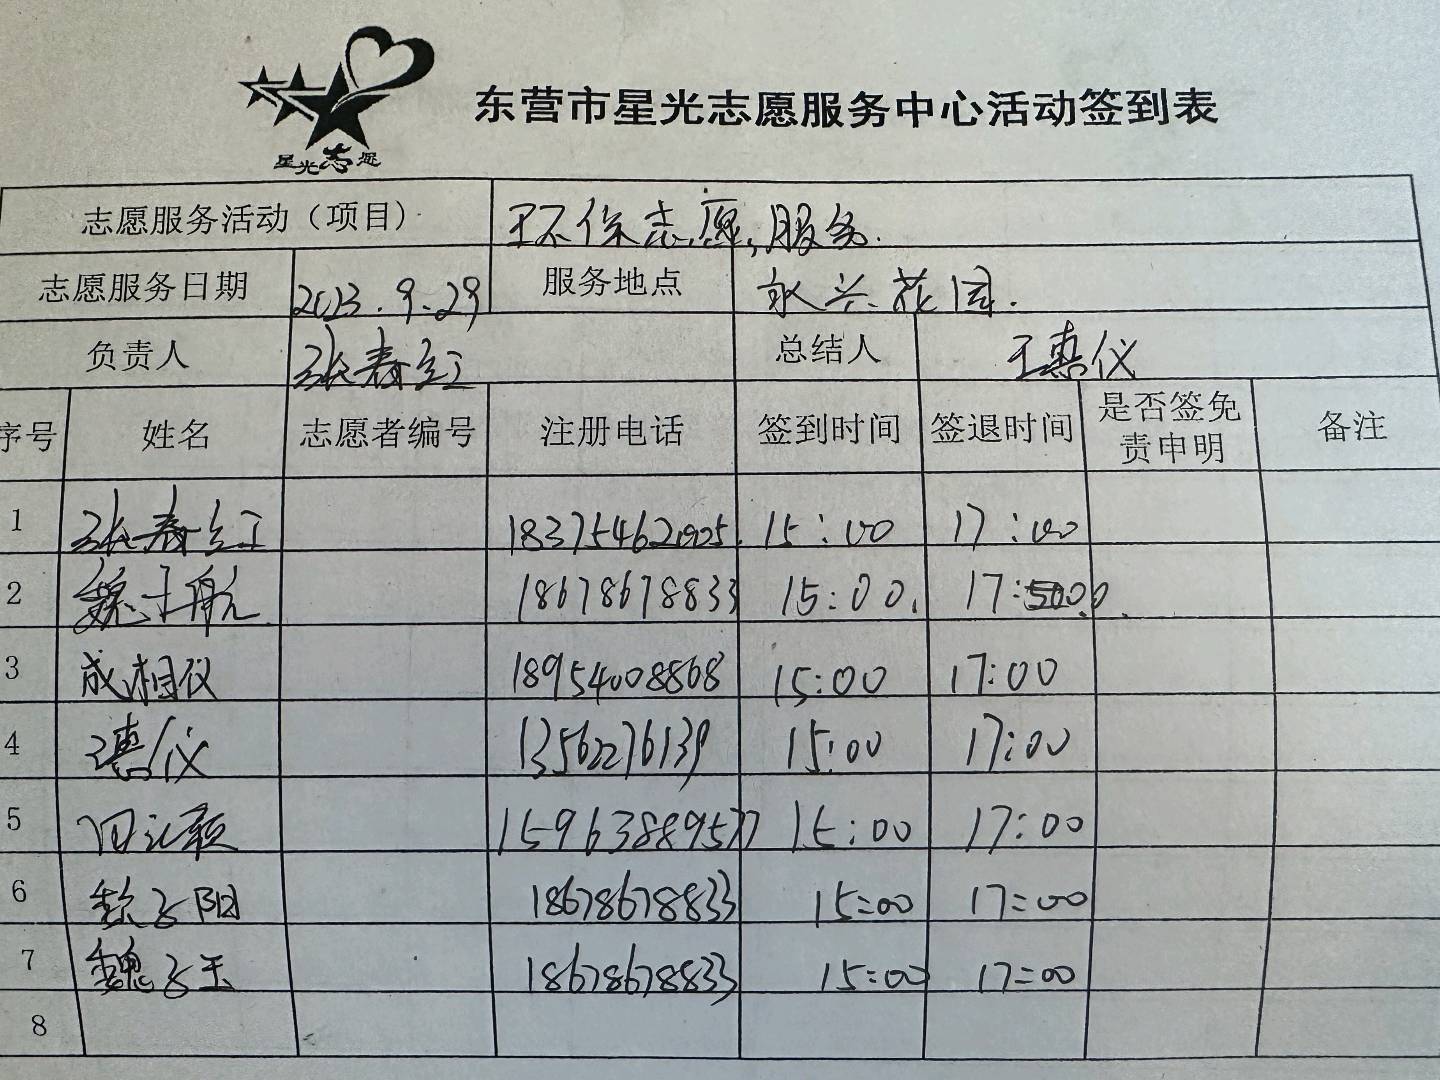 星光志愿
东营市星光志愿服务中心活动签到表
志愿服务活动（项目） 环保志愿服务.
志愿服务日期 2023.9.29 服务地点 永兴花园.
负责人 张春红 总结人 王惠仪
序号 姓名 志愿者编号 注册电话 签到时间 签退时间 是否签免责申明 备注
1 张春红 15:00 17:00
2 魏子航 18678678833 15:00. 17:00.
3 成相仪 18954008868 15:00 17:00
4 王惠仪 13562276139 15:00 17:00
5 15963889577 15:00 17:00
6 子阳 18678678833 15:00 17:00
7 魏子玉 18678678833 15:00 17:00
8